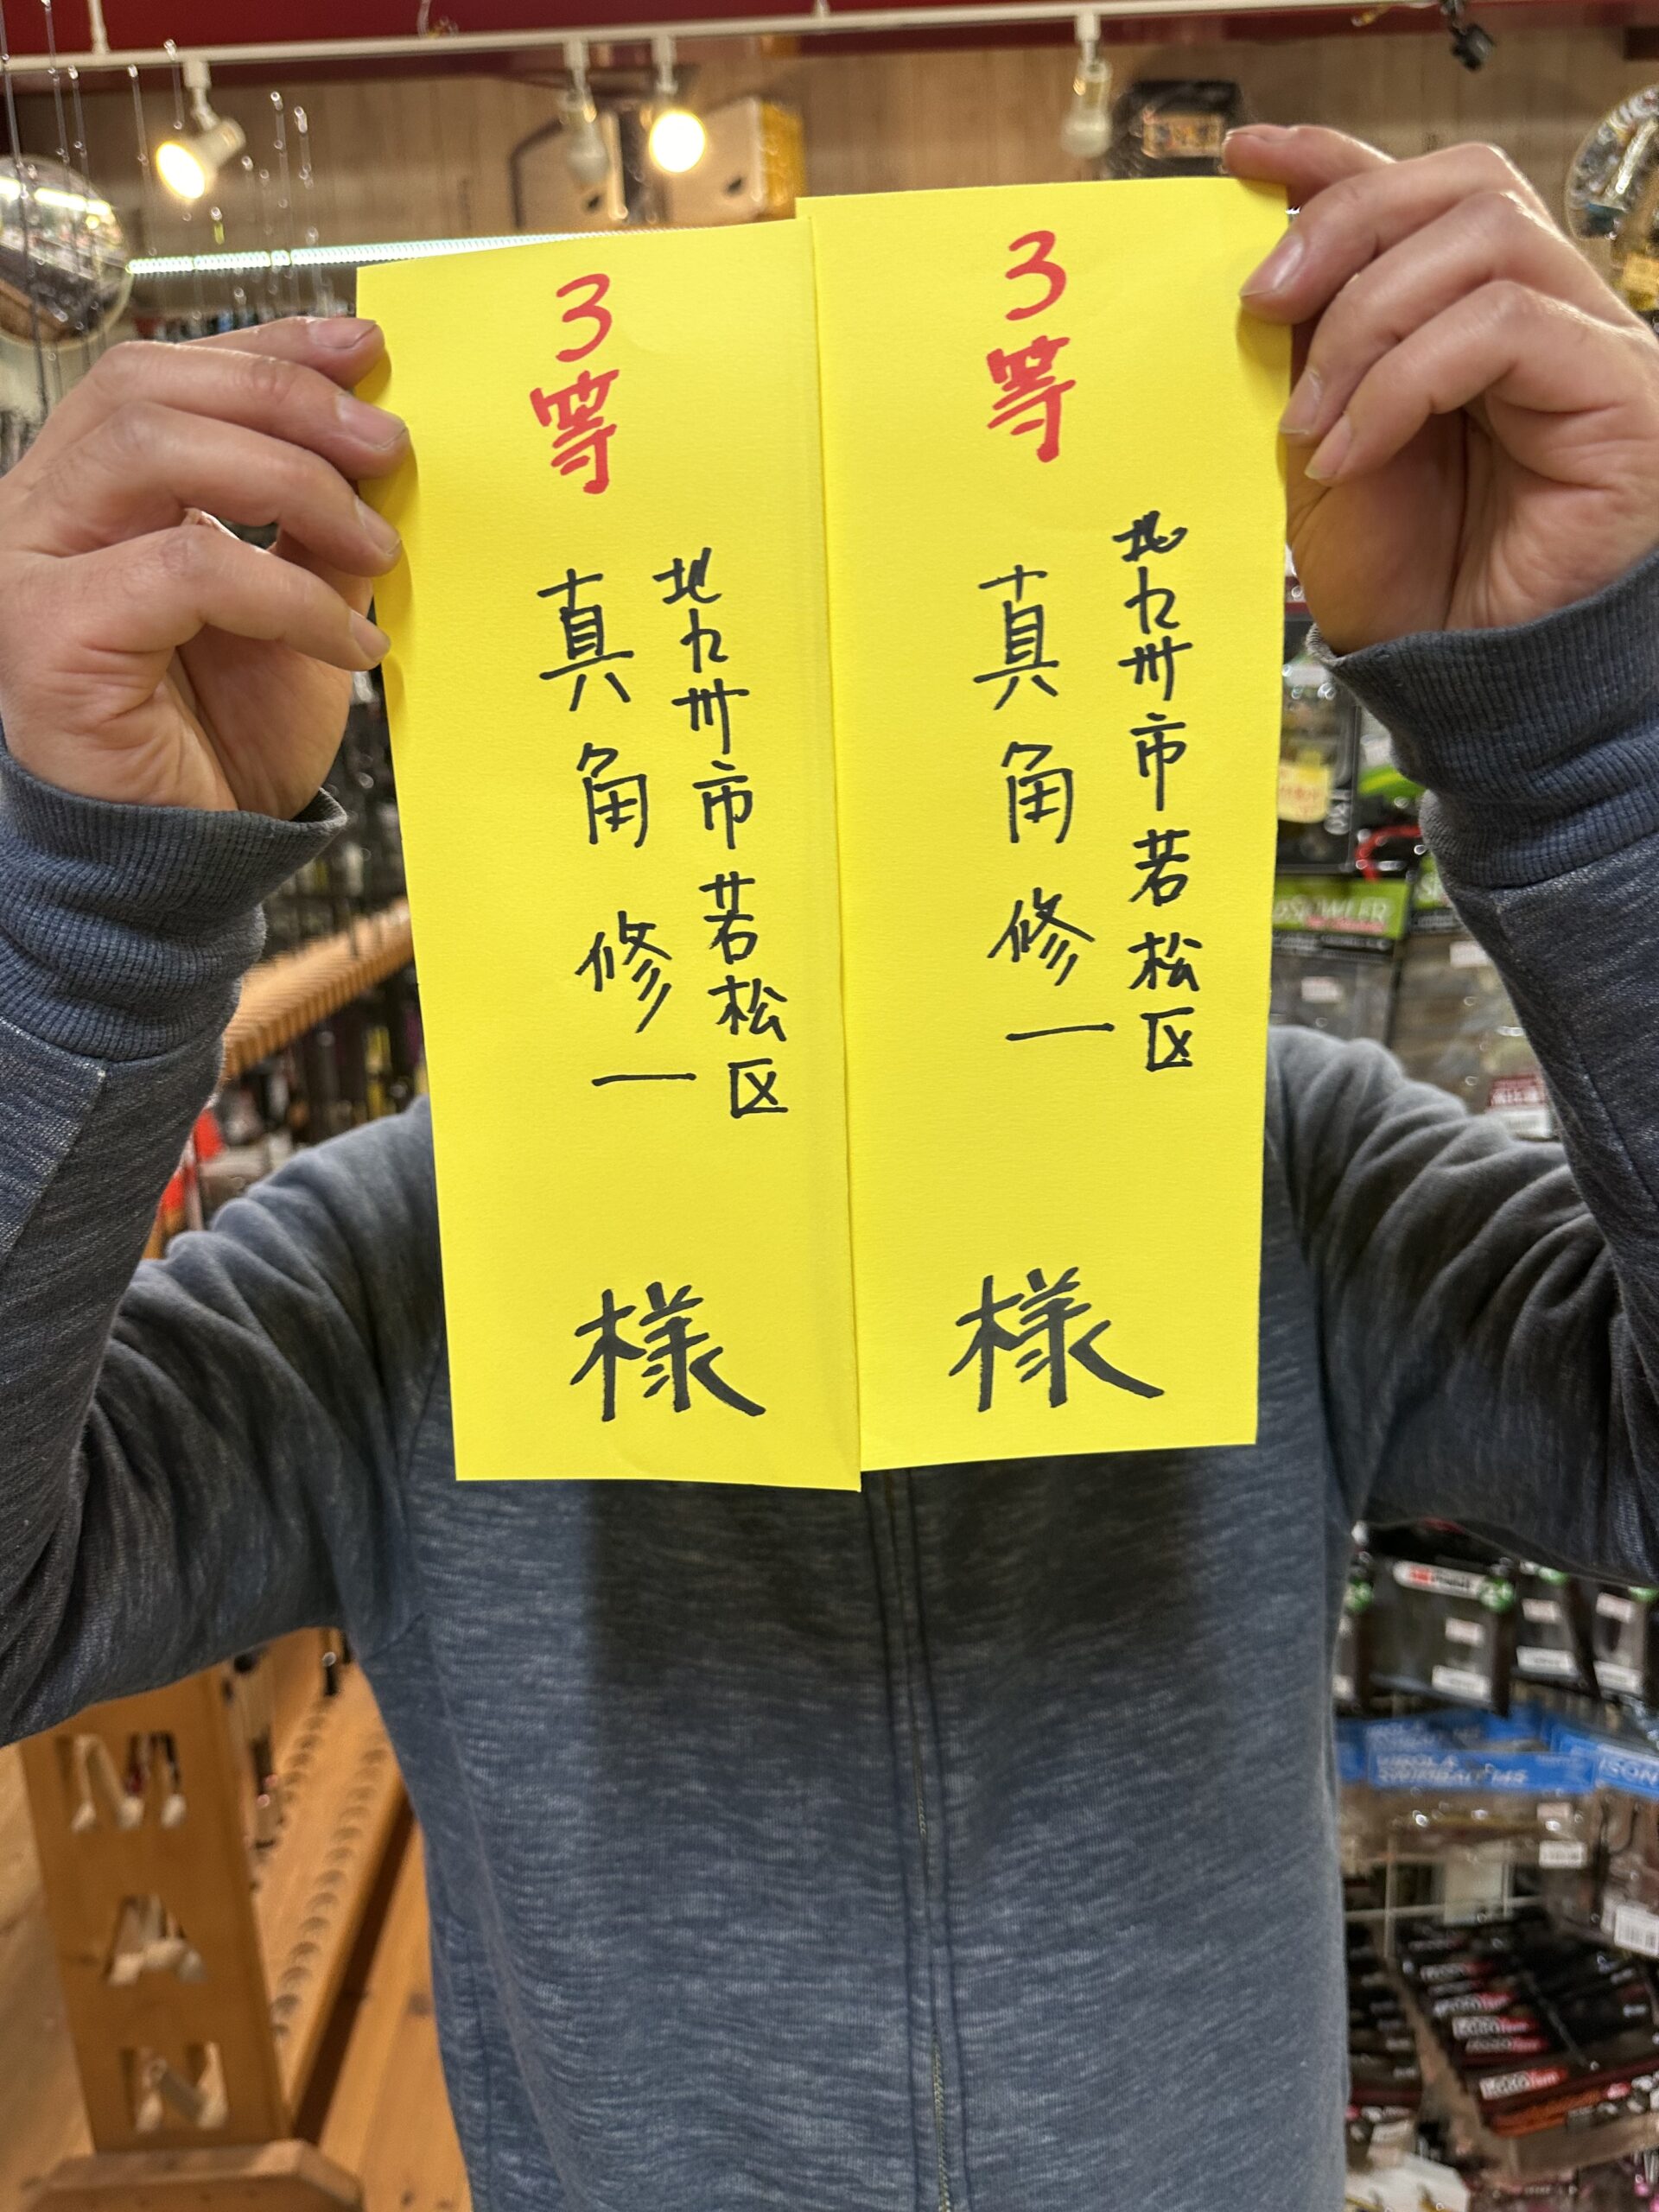 3等
北九州市若松区
真角 修一
様
3等
北九州市若松区
真角 修一
様
MAN